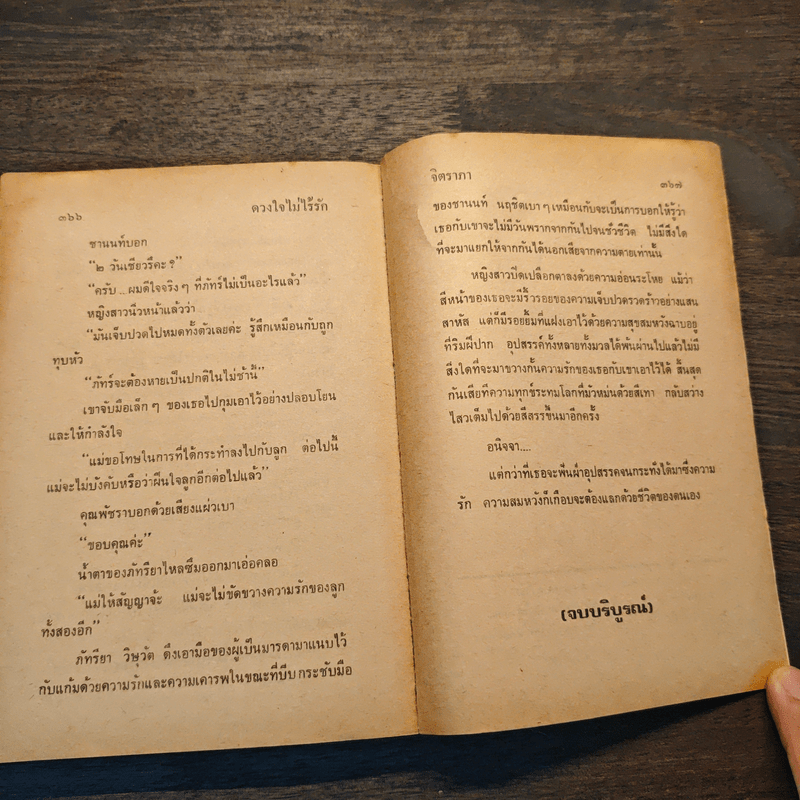 ๓๖๖ ดวงใจไม่ไร้รัก
ชานนท์บอก
“๒ วันเชียวรึคะ ?”
“ครับ .. ผมดีใจจริง ๆ ที่ภัทร์ไม่เป็นอะไรแล้ว”
หญิงสาวนิ่วหน้าแล้วว่า
“มันเจ็บปวดไปหมดทั้งตัวเลยค่ะ รู้สึกเหมือนกับถูก
ทุบหัว
“ภัทร์จะต้องหายเป็นปกติในไม่ช้านี้”
เขาจับมือเล็ก ๆ ของเธอไปกุมเอาไว้อย่างปลอบโยน
และให้กำลังใจ
“แม่ขอโทษในการที่ได้กระทำลงไปกับลูก ต่อไปนี้
แม่จะไม่บังคับหรือว่าฝืนใจลูกอีกต่อไปแล้ว”
คุณพัชราบอกด้วยเสียงแผ่วเบา
“ขอบคุณค่ะ”
น้ำตาของภัทรียาไหลซึมออกมาเอ่อคลอ
“แม่ให้สัญญาจ้ะ แม่จะไม่ขัดขวางความรักของลูก
ทั้งสองอีก”
ภัทรียา วิษุวัต ดึงเอามือของผู้เป็นมารดามาแนบไว้
กับแก้มด้วยความรักและความเคารพในขณะที่บีบกระชับมือ
จิตราภา ๓๖๗
ของชานนท์ นฤชิตเบา ๆ เหมือนกับจะเป็นการบอกให้รู้ว่า
เธอกับเขาจะไม่มีวันพรากจากกันไปจนชั่วชีวิต ไม่มีสิ่งใด
ที่จะมาแยกให้จากกันได้นอกเสียจากความตายเท่านั้น
หญิงสาวปิดเปลือกตาลงด้วยความอ่อนระโหย แม้ว่า
สีหน้าของเธอจะมีริ้วรอยของความเจ็บปวดรวดร้าวอย่างแสน
สาหัส แต่ก็มีรอยยิ้มที่แฝงเอาไว้ด้วยความสุขสมหวังฉาบอยู่
ที่ริมฝีปาก อุปสรรค์ทั้งหลายทั้งมวลได้พ้นผ่านไปแล้วไม่มี
สิ่งใดที่จะมาขวางกั้นความรักของเธอกับเขาเอาไว้ได้ สิ้นสุด
กันเสียทีความทุกข์ระทมโลกที่มัวหม่นด้วยสีเทา กลับสว่าง
ไสวเต็มไปด้วยสีสรรขึ้นมาอีกครั้ง
อนิจจา....
แต่กว่าที่เธอจะฟันฝ่าอุปสรรคจนกระทั่งได้มาซึ่งความ
รัก ความสมหวังก็เกือบจะต้องแลกด้วยชีวิตของตนเอง
(จบบริบูรณ์)